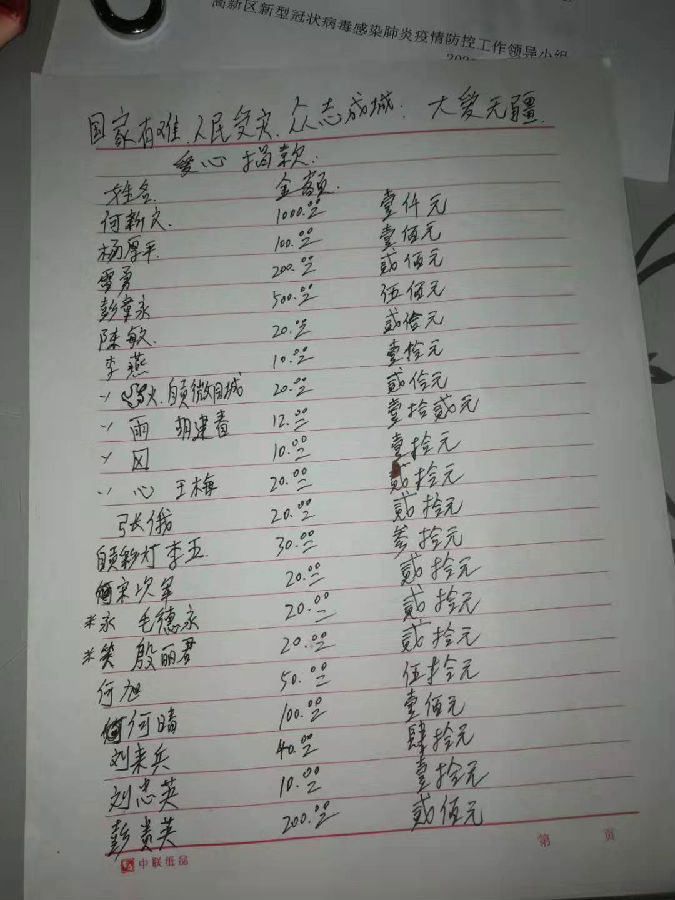 高新区新型冠状病毒感染肺炎疫情防控工作领导小组
国家有难.人民受灾.众志成城.大爱无疆.
爱心捐款.
姓名 金额.
何新文. 1000.00 壹仟元
杨厚平 100.00 壹佰元
雷勇 200.00 贰佰元
彭章永 500.00 伍佰元
陈敏 20.00 贰拾元
李燕 10.00 壹拾元
火. 20.00 贰拾元
雨 胡建春 12.00 壹拾贰元
风 10.00 壹拾元
心 王梅 20.00 贰拾元
张俄 20.00 贰拾元
李玉 30.00 叁拾元
宋次军 20.00 贰拾元
*永 毛德永 20.00 贰拾元
*笑 殷丽君 20.00 贰拾元
何旭 50.00 伍拾元
何晴 100.00 壹佰元
刘来兵 40.00 肆拾元
刘志英 10.00 壹拾元
彭贵英 200.00 贰佰元
第 页
中联纸品